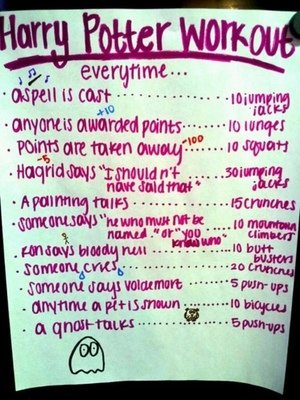 Harry Potter Workout
everytime...
• a spell is cast ........ 10 jumping jacks
+10
• anyone is awarded points ...... 10 lunges
• Points are taken away ........ 10 squats
-100
-5
• Hagrid says "I shouldn't have said that" ........ 30 jumping jacks
• A painting talks ............ 15 crunches
• someone says "he who must not be named" or "you know who" ... 10 mountain climbers
• Ron says bloody hell ........ 10 butt busters
• someone cries ............ 20 crunches
• someone says voldemort ...... 5 push-ups
• anytime a pet is shown ...... 10 bicycles
• a ghost talks ............ 5 push-ups